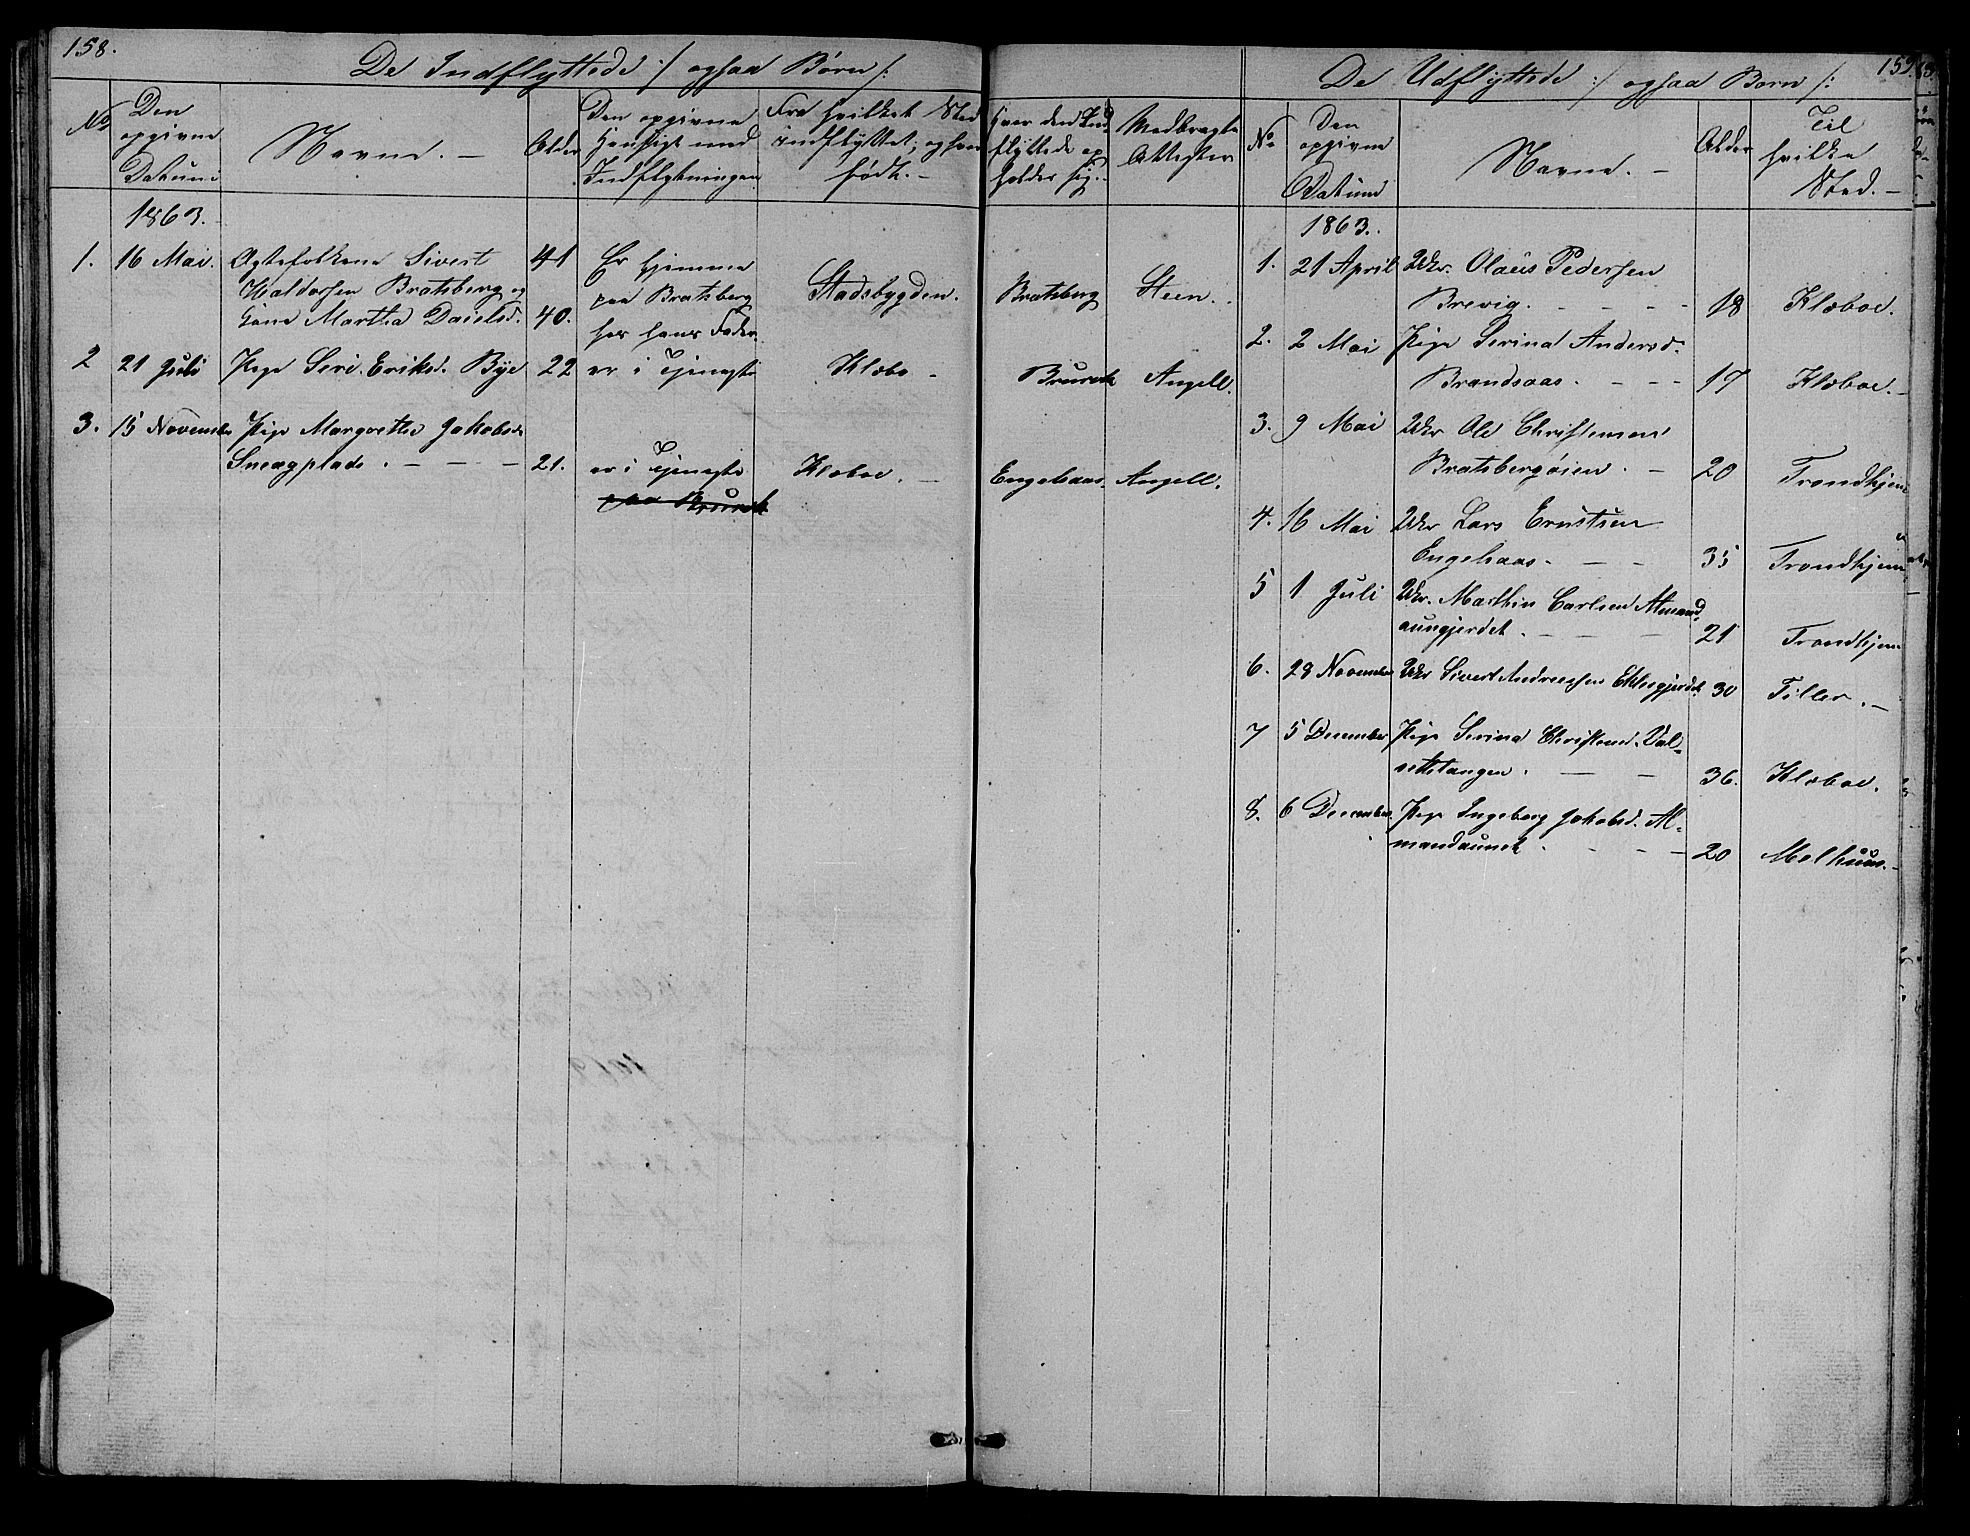 158.
De Indflyttede :/ ogsaa Børn /:
No
Den opgivne Datum
Navne. —
Alder
Den opgivne Hensigt med Indflytningen
Fra hvilket Sted indflyttet, og hvor født. —
Hvor den Ind flyttede op holder sig.
Medbragte Attester
1863.
1. 16 Mai. Ægtefolkene Sivert 41 Er hjemme
Haldorsen Bratsberg og paa Bratsberg Stadsbygden. Bratsberg Steen.
Kone Martha Daielsd. 40. hos hans Fader
2 21 Juli Pige Seri Eriksd. Bye 22 er i Tjeneste Klæbo — Bruset Angell.
3. 15 November Pige Margrethe Jakobsd.
Sneagplads. — — — 21. er i Tjeneste Klæboe. — Engelsaas. Angell.
paa Bruset
159
De Udflyttede :/ ogsaa Børn /:
No
Den opgivne Datum
Navne. —
Alder
Til hvilke Sted. —
1863.
1. 21 April Ukr. Olaus Pedersen
Brevig. - - - 18 Klæboe.
2. 2 Mai Pige Serina Andersd.
Brandsaas. - - - 17 Klæboe. —
3. 9 Mai Ukr Ole Christensen
Bratsbergøien. — 20 Trondhjem
4. 16 Mai Ukr Lars Erntsen
Engelsaas. — — 35 Trondhjem
5 1 Juli Ukr. Marthin Carlsen Almand
aungjerdet. — — — 21 Trondhjem
6. 28 November Ukr Sivert Andreassen Eklesgjerdet 30 Tiller. —
7 5 December Pige Serina Christensd. Val-
settangen. — — 36. Klæboe.
8. 6 December Pige Ingeborg Jakobsd. Al-
mandaunet. - - - 20 Melhuus. —